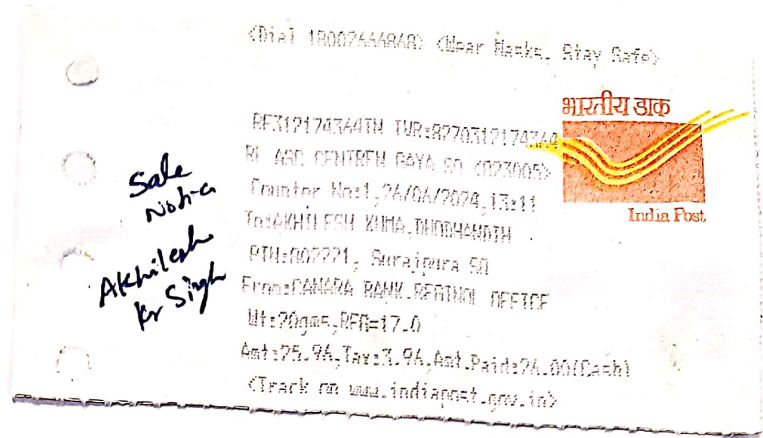 <Dial 18002666868> <Wear Masks, Stay Safe>
भारतीय डाक
India Post
RF312174364IN IVR:8270312174364
RL ASC CENTREN GAYA SO <823005>
Counter No:1,26/06/2024,13:11
To:AKHILESH KUMA,DHODHANDIH
PIN:802221, Surajpura SO
From:CANARA BANK,REGINOL OFFICE
Wt:20gms,REG=17.0
Amt:25.96,Tax:3.96,Amt.Paid:26.00(Cash)
<Track on www.indiapost.gov.in>
Sale
Notice
Akhilesh
Kr Singh